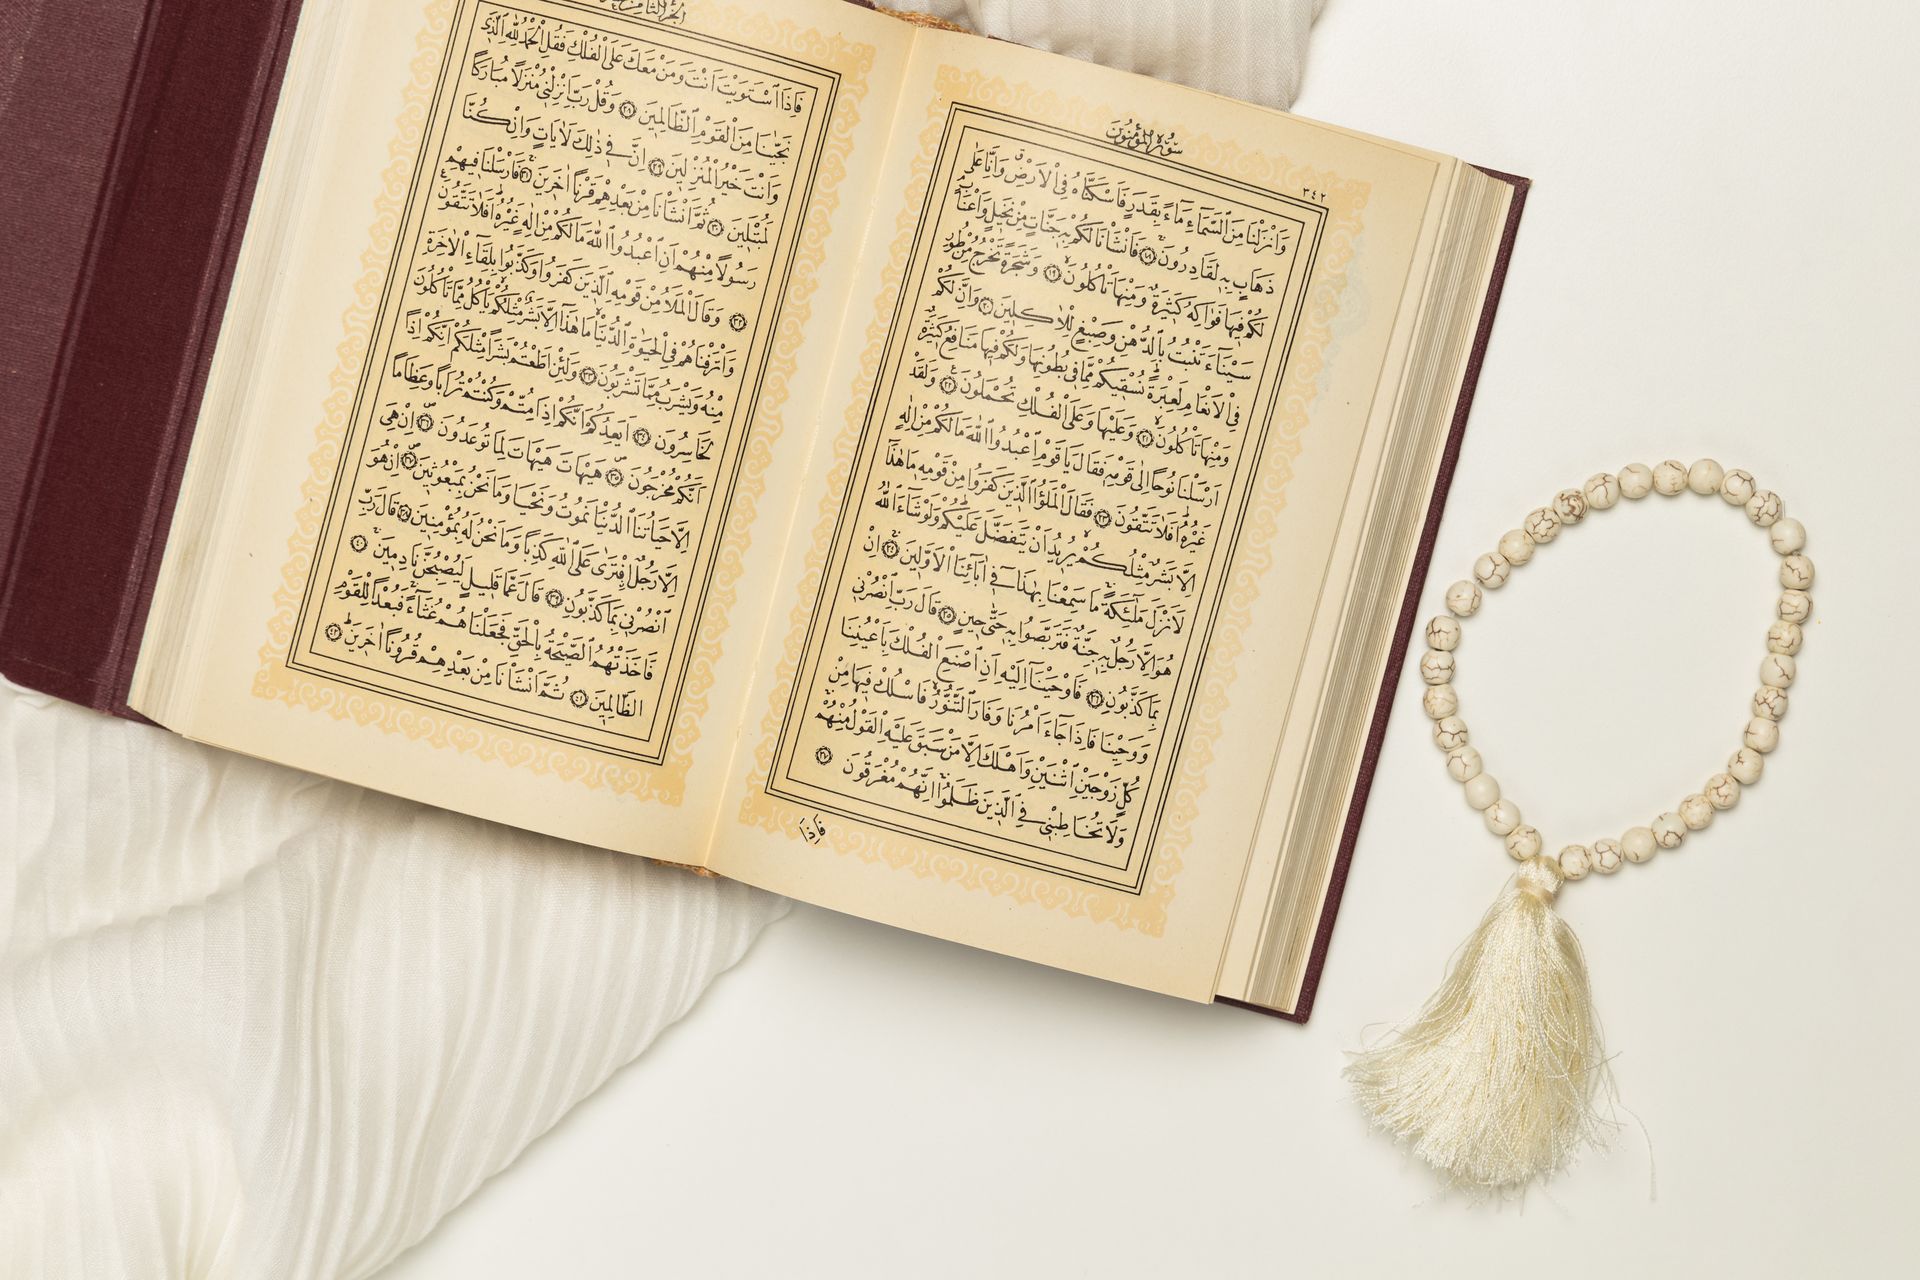 سُورَةُ الْمُؤْمِنُونَ
٣٤٢
وَاَنْزَلْنَا مِنَ السَّمَاءِ مَاءً بِقَدَرٍ فَاَسْكَنَّاهُ فِي الْاَرْضِ وَاِنَّا عَلٰى
ذَهَابٍ بِهِ لَقَادِرُونَ ١٨ فَاَنْشَاْنَا لَكُمْ بِهِ جَنَّاتٍ مِنْ نَخِيلٍ وَاَعْنَابٍ
لَكُمْ فِيهَا فَوَاكِهُ كَثِيرَةٌ وَمِنْهَا تَاْكُلُونَ ١٩ وَشَجَرَةً تَخْرُجُ مِنْ طُورِ
سَيْنَاءَ تَنْبُتُ بِالدُّهْنِ وَصِبْغٍ لِلْاٰكِلِينَ ٢٠ وَاِنَّ لَكُمْ
فِي الْاَنْعَامِ لَعِبْرَةً نُسْقِيكُمْ مِمَّا فِي بُطُونِهَا وَلَكُمْ فِيهَا مَنَافِعُ كَثِيرَةٌ
وَمِنْهَا تَاْكُلُونَ ٢١ وَعَلَيْهَا وَعَلَى الْفُلْكِ تُحْمَلُونَ ٢٢ وَلَقَدْ
اَرْسَلْنَا نُوحًا اِلٰى قَوْمِهِ فَقَالَ يَا قَوْمِ اعْبُدُوا اللّٰهَ مَا لَكُمْ مِنْ اِلٰهٍ
غَيْرُهُ اَفَلَا تَتَّقُونَ ٢٣ فَقَالَ الْمَلَؤُا الَّذِينَ كَفَرُوا مِنْ قَوْمِهِ مَا هٰذَا
اِلَّا بَشَرٌ مِثْلُكُمْ يُرِيدُ اَنْ يَتَفَضَّلَ عَلَيْكُمْ وَلَوْ شَاءَ اللّٰهُ
لَاَنْزَلَ مَلٰئِكَةً مَا سَمِعْنَا بِهٰذَا فِي اٰبَائِنَا الْاَوَّلِينَ ٢٤ اِنْ
هُوَ اِلَّا رَجُلٌ بِهِ جِنَّةٌ فَتَرَبَّصُوا بِهِ حَتّٰى حِينٍ ٢٥ قَالَ رَبِّ انْصُرْنِي
بِمَا كَذَّبُونِ ٢٦ فَاَوْحَيْنَا اِلَيْهِ اَنِ اصْنَعِ الْفُلْكَ بِاَعْيُنِنَا
وَوَحْيِنَا فَاِذَا جَاءَ اَمْرُنَا وَفَارَ التَّنُّورُ فَاسْلُكْ فِيهَا مِنْ
كُلٍّ زَوْجَيْنِ اثْنَيْنِ وَاَهْلَكَ اِلَّا مَنْ سَبَقَ عَلَيْهِ الْقَوْلُ مِنْهُمْ
وَلَا تُخَاطِبْنِي فِي الَّذِينَ ظَلَمُوا اِنَّهُمْ مُغْرَقُونَ ٢٧
فَاِذَا
فَاِذَا اسْتَوَيْتَ اَنْتَ وَمَنْ مَعَكَ عَلَى الْفُلْكِ فَقُلِ الْحَمْدُ لِلّٰهِ الَّذِي
نَجّٰينَا مِنَ الْقَوْمِ الظَّالِمِينَ ٢٨ وَقُلْ رَبِّ اَنْزِلْنِي مُنْزَلًا مُبَارَكًا
وَاَنْتَ خَيْرُ الْمُنْزِلِينَ ٢٩ اِنَّ فِي ذٰلِكَ لَاٰيَاتٍ وَاِنْ كُنَّا
لَمُبْتَلِينَ ٣٠ ثُمَّ اَنْشَاْنَا مِنْ بَعْدِهِمْ قَرْنًا اٰخَرِينَ ٣١ فَاَرْسَلْنَا فِيهِمْ
رَسُولًا مِنْهُمْ اَنِ اعْبُدُوا اللّٰهَ مَا لَكُمْ مِنْ اِلٰهٍ غَيْرُهُ اَفَلَا تَتَّقُونَ
٣٢ وَقَالَ الْمَلَاُ مِنْ قَوْمِهِ الَّذِينَ كَفَرُوا وَكَذَّبُوا بِلِقَاءِ الْاٰخِرَةِ
وَاَتْرَفْنَاهُمْ فِي الْحَيٰوةِ الدُّنْيَا مَا هٰذَا اِلَّا بَشَرٌ مِثْلُكُمْ يَاْكُلُ مِمَّا تَاْكُلُونَ
مِنْهُ وَيَشْرَبُ مِمَّا تَشْرَبُونَ ٣٣ وَلَئِنْ اَطَعْتُمْ بَشَرًا مِثْلَكُمْ اِنَّكُمْ اِذًا
لَخَاسِرُونَ ٣٤ اَيَعِدُكُمْ اَنَّكُمْ اِذَا مِتُّمْ وَكُنْتُمْ تُرَابًا وَعِظَامًا
اَنَّكُمْ مُخْرَجُونَ ٣٥ هَيْهَاتَ هَيْهَاتَ لِمَا تُوعَدُونَ ٣٦ اِنْ هِيَ
اِلَّا حَيَاتُنَا الدُّنْيَا نَمُوتُ وَنَحْيَا وَمَا نَحْنُ بِمَبْعُوثِينَ ٣٧ اِنْ هُوَ
اِلَّا رَجُلٌ افْتَرٰى عَلَى اللّٰهِ كَذِبًا وَمَا نَحْنُ لَهُ بِمُؤْمِنِينَ ٣٨ قَالَ رَبِّ
انْصُرْنِي بِمَا كَذَّبُونِ ٣٩ قَالَ عَمَّا قَلِيلٍ لَيُصْبِحُنَّ نَادِمِينَ ٤٠
فَاَخَذَتْهُمُ الصَّيْحَةُ بِالْحَقِّ فَجَعَلْنَاهُمْ غُثَاءً فَبُعْدًا لِلْقَوْمِ
الظَّالِمِينَ ٤١ ثُمَّ اَنْشَاْنَا مِنْ بَعْدِهِمْ قُرُونًا اٰخَرِينَ ٤٢